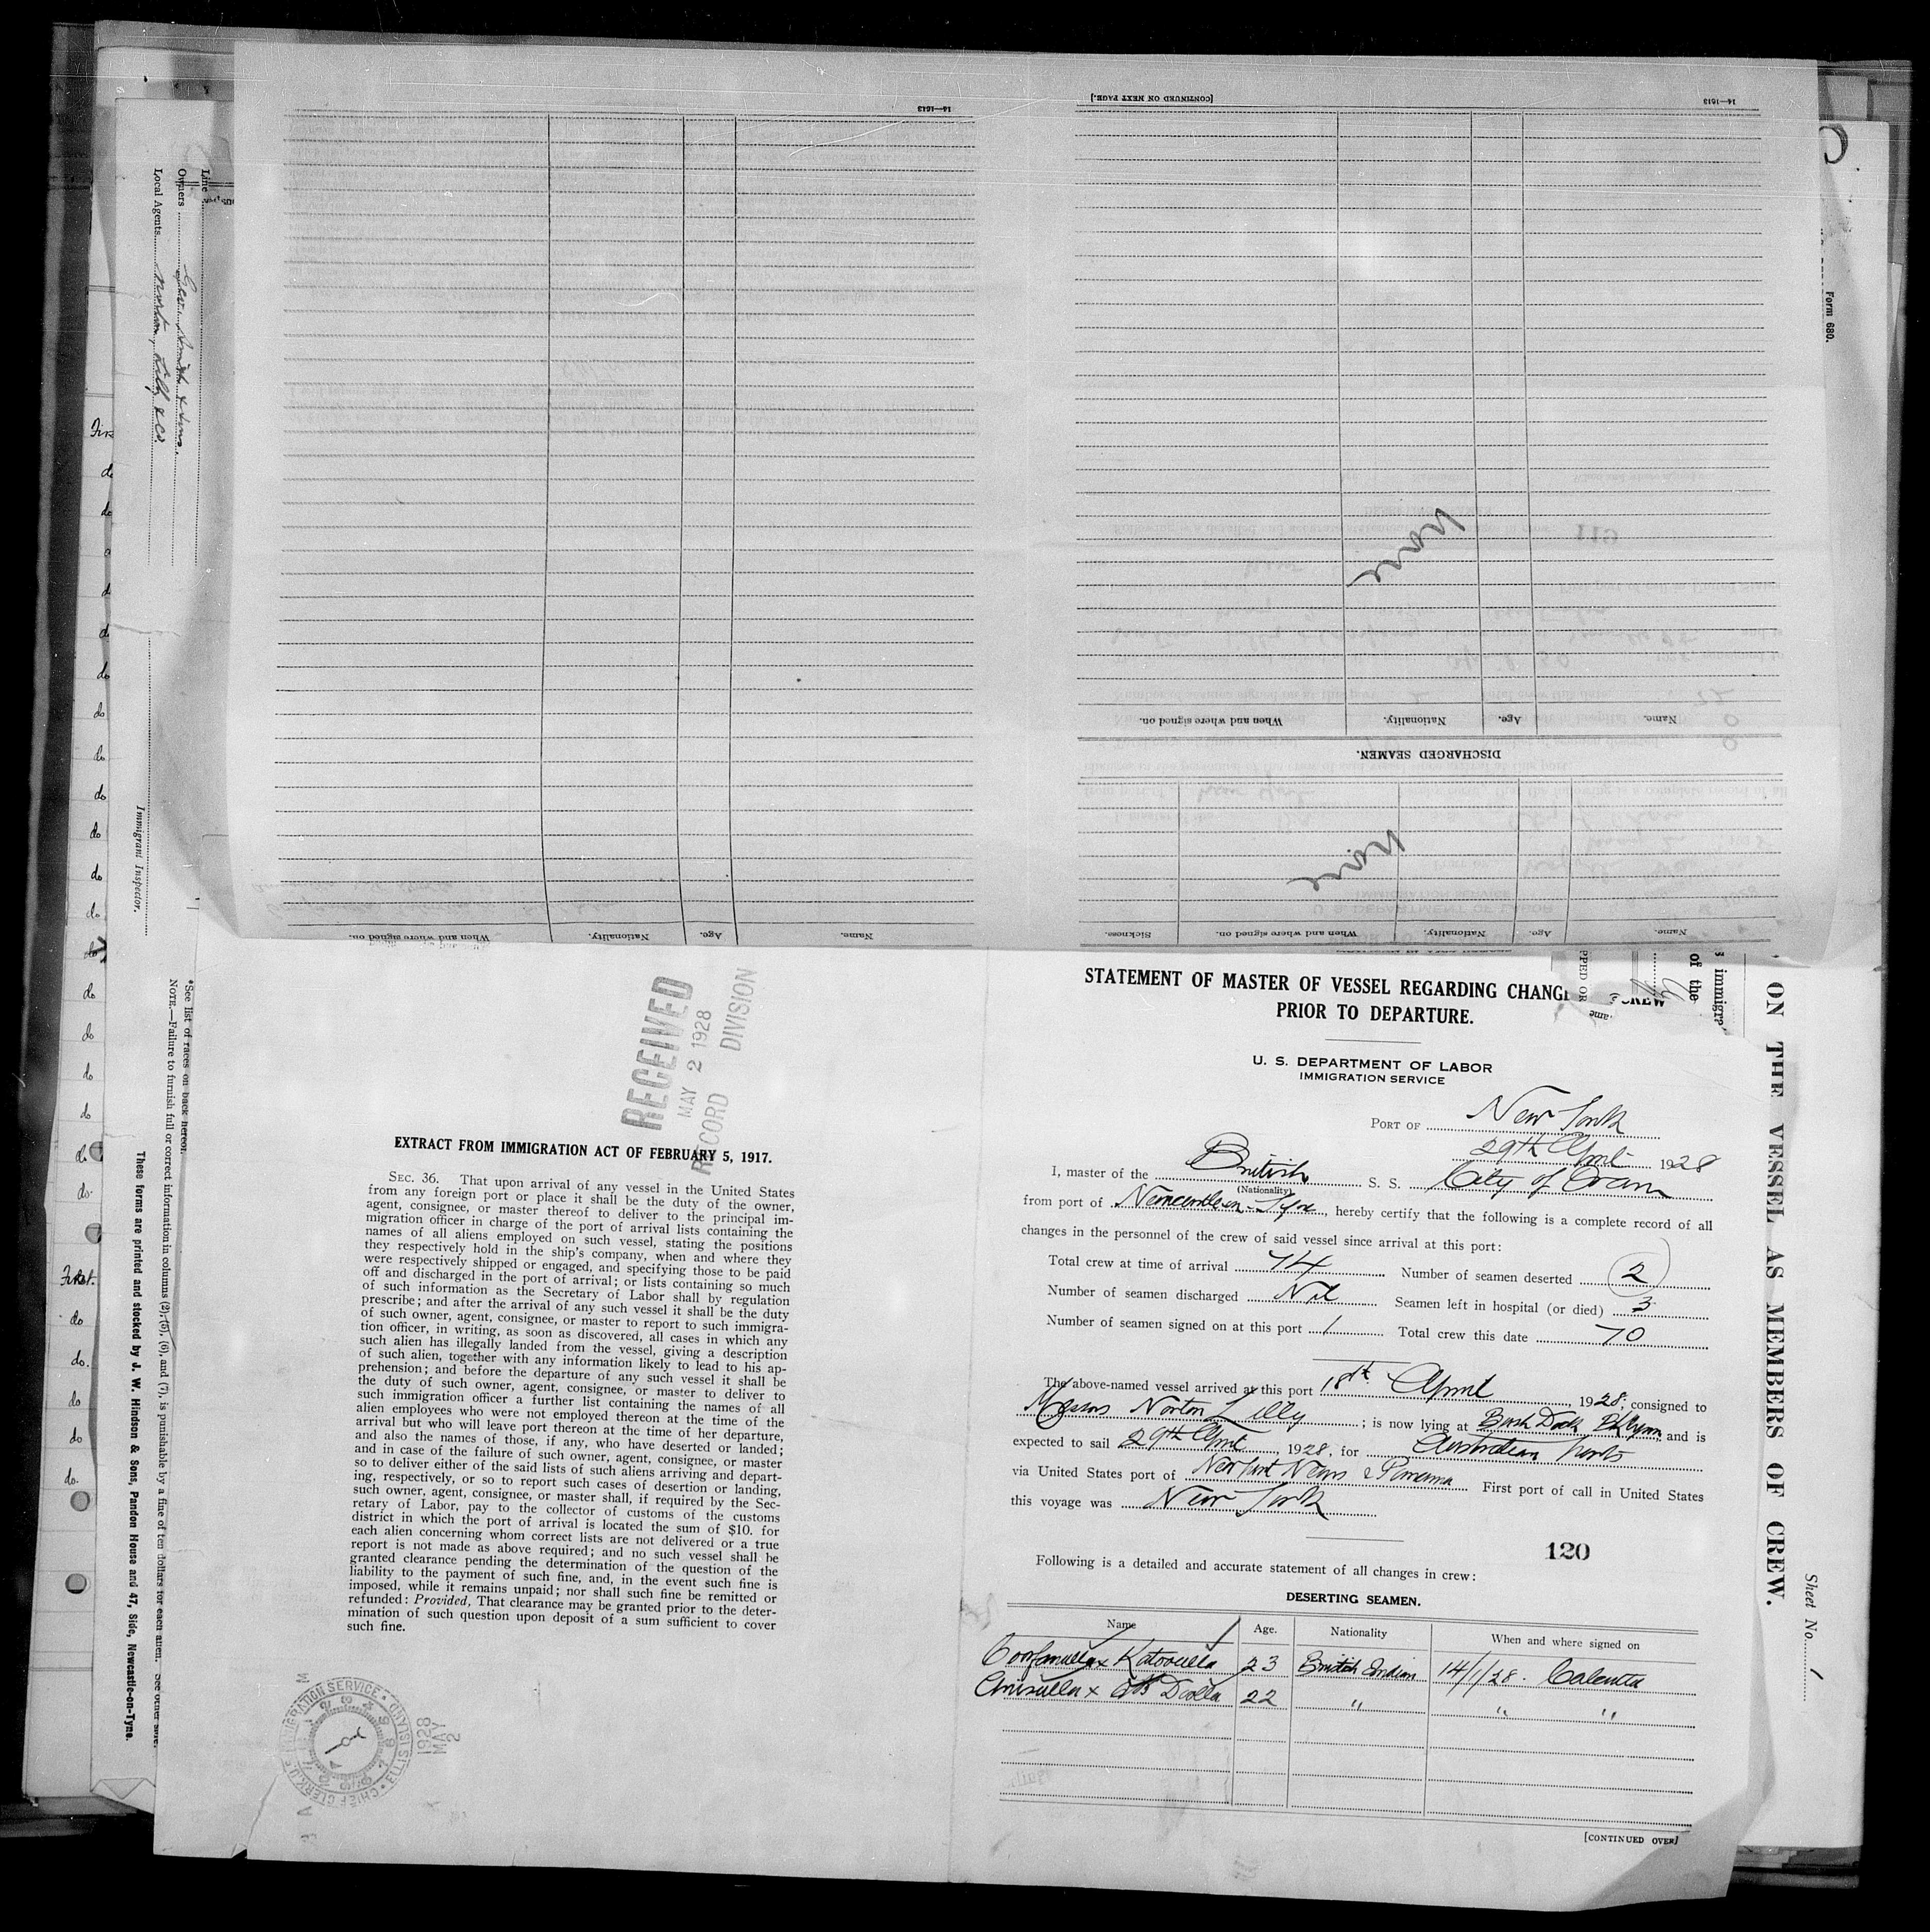 [CONTINUED ON NEXT PAGE.]
14—1613
14—1613
None
Name. Age. Nationality. When and where signed on.
DISCHARGED SEAMEN.
None
Name. Age. Nationality. When and where signed on. Sickness.
Name. Age. Nationality. When and where signed on.
Form 680.
Line
Owners Geo. Smith & Sons.
Local Agents Norton, Lilly & Co.
Immigrant Inspector.
*See list of races on back hereof.
NOTE.—Failure to furnish full or correct information in columns (2), (5), (6), and (7), is punishable by a fine of ten dollars for each alien. See other side.
These forms are printed and stocked by J. W. Hindson & Sons, Pandon House and 47, Side, Newcastle-on-Tyne.
do
do
do
do
do
do
do
do
do
do
do
do
do
do
First.
do
do.
do
do
do.
RECEIVED
MAY 2 1928
RECORD DIVISION
EXTRACT FROM IMMIGRATION ACT OF FEBRUARY 5, 1917.
SEC. 36. That upon arrival of any vessel in the United States
from any foreign port or place it shall be the duty of the owner,
agent, consignee, or master thereof to deliver to the principal im-
migration officer in charge of the port of arrival lists containing the
names of all aliens employed on such vessel, stating the positions
they respectively hold in the ship's company, when and where they
were respectively shipped or engaged, and specifying those to be paid
off and discharged in the port of arrival; or lists containing so much
of such information as the Secretary of Labor shall by regulation
prescribe; and after the arrival of any such vessel it shall be the duty
of such owner, agent, consignee, or master to report to such immigra-
tion officer, in writing, as soon as discovered, all cases in which any
such alien has illegally landed from the vessel, giving a description
of such alien, together with any information likely to lead to his ap-
prehension; and before the departure of any such vessel it shall be
the duty of such owner, agent, consignee, or master to deliver to
such immigration officer a further list containing the names of all
alien employees who were not employed thereon at the time of the
arrival but who will leave port thereon at the time of her departure,
and also the names of those, if any, who have deserted or landed;
and in case of the failure of such owner, agent, consignee, or master
so to deliver either of the said lists of such aliens arriving and depart-
ing, respectively, or so to report such cases of desertion or landing,
such owner, agent, consignee, or master shall, if required by the Sec-
retary of Labor, pay to the collector of customs of the customs
district in which the port of arrival is located the sum of $10. for
each alien concerning whom correct lists are not delivered or a true
report is not made as above required; and no such vessel shall be
granted clearance pending the determination of the question of the
liability to the payment of such fine, and, in the event such fine is
imposed, while it remains unpaid; nor shall such fine be remitted or
refunded: Provided, That clearance may be granted prior to the deter-
mination of such question upon deposit of a sum sufficient to cover
such fine.
1928
MAY
2
STATEMENT OF MASTER OF VESSEL REGARDING CHANG CREW
PRIOR TO DEPARTURE.
U. S. DEPARTMENT OF LABOR
IMMIGRATION SERVICE
PORT OF New York
29th April 1928
I, master of the British S. S. City of Oran
(Nationality)
from port of Newcastle on Tyne, hereby certify that the following is a complete record of all
changes in the personnel of the crew of said vessel since arrival at this port:
Total crew at time of arrival 74 Number of seamen deserted 2
Number of seamen discharged Nil Seamen left in hospital (or died) 3
Number of seamen signed on at this port 1 Total crew this date 70
The above-named vessel arrived at this port 18th April, 1928, consigned to
Messrs Norton Lilly; is now lying at Bush Dock Bklynn and is
expected to sail 29th April, 1928, for Australian Ports
via United States port of Newport News & Panama First port of call in United States
this voyage was New York
120
Following is a detailed and accurate statement of all changes in crew:
DESERTING SEAMEN.
Name Age. Nationality When and where signed on
Katooulla 23 British Indian 14/1/28. Calcutta
22 " " "
[CONTINUED OVER]
of the
immigr
ON THE VESSEL AS MEMBERS OF CREW.
Sheet No. 1